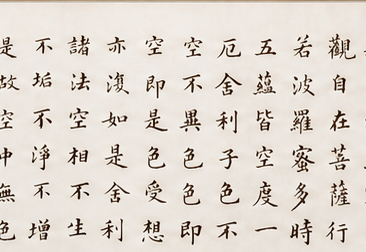 觀自在菩薩行
若波羅蜜多時
五蘊皆空度一
厄舍利子色不
空不異色色即
空即是色受想
亦復如是舍利
諸法空相不生
不垢不淨不增
是故空中無色